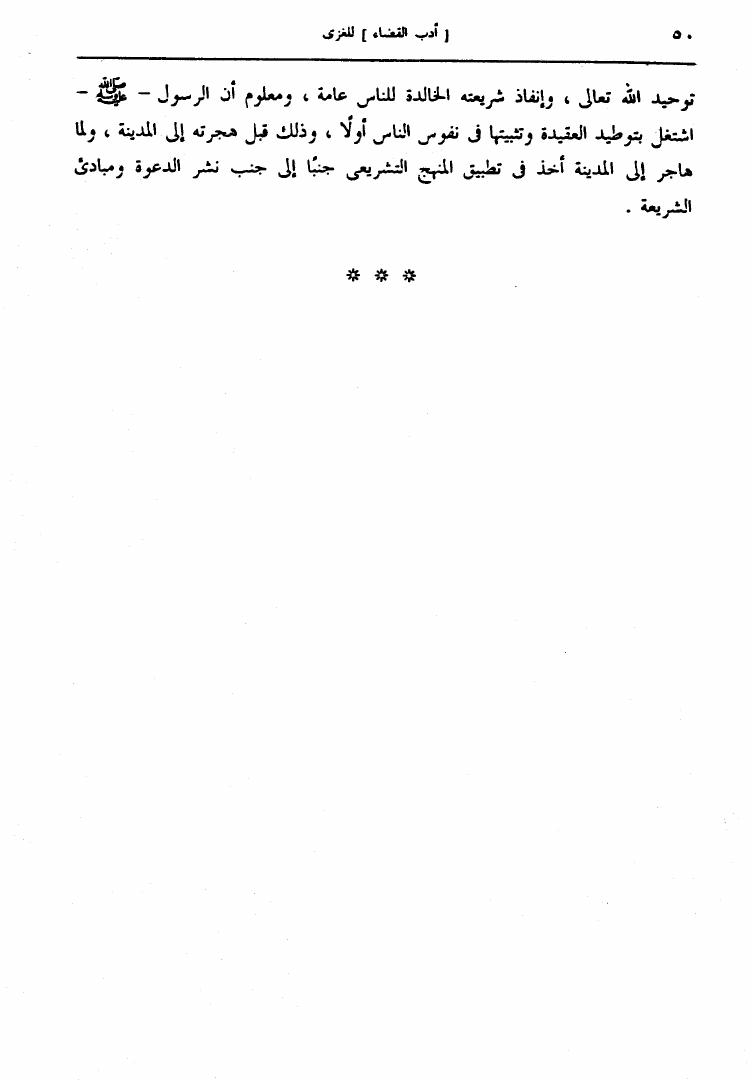 ٥٠ [ أدب القضاء ] للغزى
توحيد الله تعالى ، وإنفاذ شريعته الخالدة للناس عامة ، ومعلوم أن الرسول – ﷺ –
اشتغل بتوطيد العقيدة وتثبيتها فى نفوس الناس أولًا ، وذلك قبل هجرته إلى المدينة ، ولما
هاجر إلى المدينة أخذ فى تطبيق المنهج التشريعى جنبًا إلى جنب نشر الدعوة ومبادئ
الشريعة .
* * *